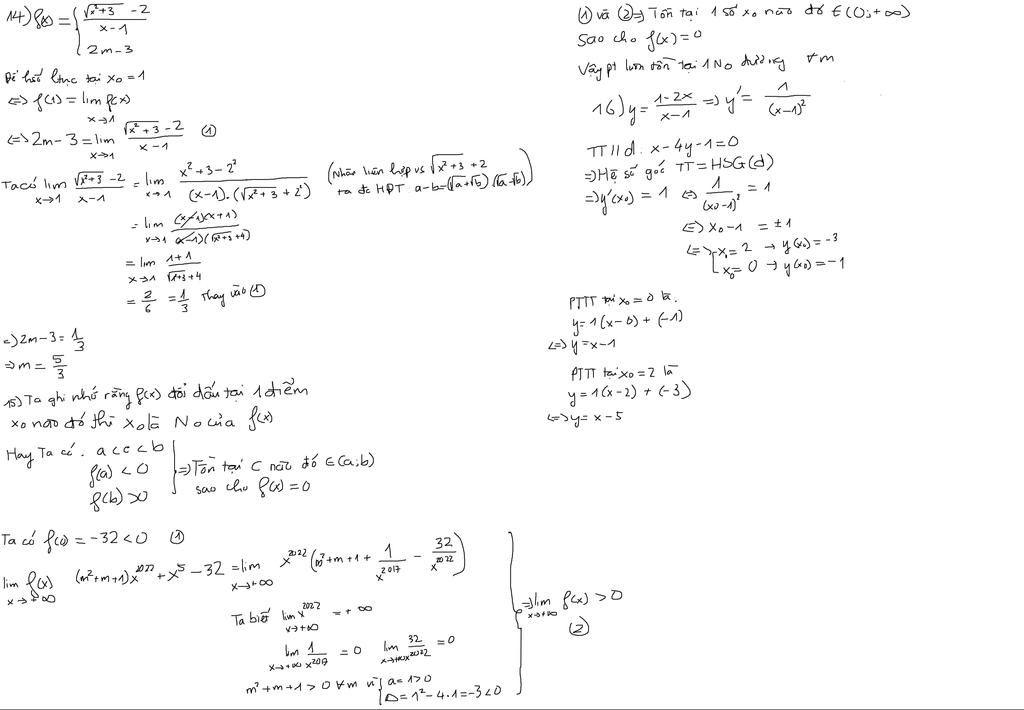 14) f(x) = { (√(x²+3) - 2)/(x-1)
2m-3
Để h/số ltục tại x₀ = 1
<=> f(1) = lim f(x)
x→1
<=> 2m-3 = lim (√(x²+3) - 2)/(x-1) (1)
x→1
Ta có lim (√(x²+3) - 2)/(x-1) = lim (x²+3-2²)/((x-1).(√(x²+3)+2²)) (Nhân liên hợp vs √(x²+3) + 2
x→1 x→1 ta đc HĐT a-b=(√a+√b)(√a-√b))
= lim ((x-1)(x+1))/((x-1)(√(x²+3)+4))
x→1
= lim (1+1)/(√(1+3)+4)
x→1
= 2/6 = 1/3 thay vào (1)
=> 2m-3 = 1/3
=> m = 5/3
15) Ta ghi nhớ rằng f(x) đổi dấu tại 1 điểm
x₀ nào đó thì x₀ là No của f(x)
Hay Ta có. a < c < b
f(a) < 0
f(b) > 0
} => Tồn tại c nào đó ∈ (a;b)
sao cho f(x) = 0
Ta có f(0) = -32 < 0 (1)
lim f(x) (m²+m+1)x²⁰²² + x⁵ - 32 = lim x²⁰²² (m²+m+1 + 1/x²⁰¹⁷ - 32/x²⁰²²)
x→+∞ x→+∞
Ta biết lim x²⁰²² = +∞
x→+∞
lim 1/x²⁰¹⁷ = 0 lim 32/x²⁰²² = 0
x→+∞ x→+∞
m²+m+1 > 0 ∀m vì { a = 1 > 0
Δ = 1² - 4.1 = -3 < 0
} => lim f(x) > 0
x→+∞
(2)
(1) và (2) => Tồn tại 1 số x₀ nào đó ∈ (0;+∞)
sao cho f(x) = 0
Vậy pt luôn tồn tại 1 No dương ∀m
16) y = (1-2x)/(x-1) => y' = 1/(x-1)²
TT // d. x - 4y - 1 = 0
=> Hệ số góc TT = HSG(d)
=> y'(x₀) = 1 <=> 1/(x₀-1)² = 1
<=> x₀ - 1 = ±1
<=> [ x₀ = 2 → y(x₀) = -3
x₀ = 0 → y(x₀) = -1
PTTT tại x₀ = 0 là.
y = 1(x-0) + (-1)
<=> y = x-1
PTTT tại x₀ = 2 là
y = 1(x-2) + (-3)
<=> y = x-5